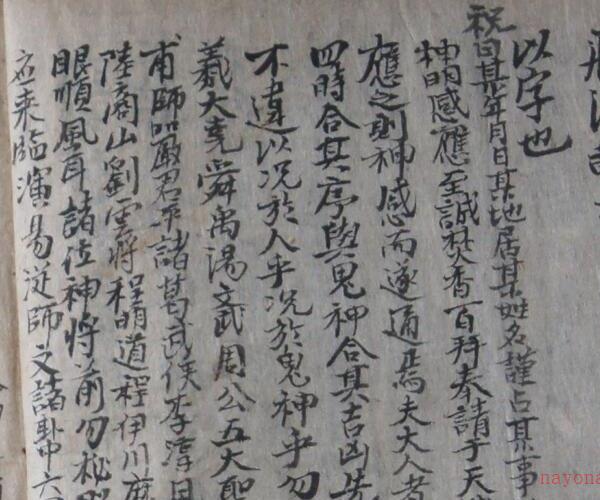 以字也
祝曰某年月日某地居某姓名謹占某事
神明感應至誠焚香百拜奉請于天
應之則神感而遂通焉夫大人者
四時合其序與鬼神合其吉凶先
不違以况於人乎况於鬼神乎勿
羲大堯舜禹湯文武周公五大聖
甫師嚴君平諸葛武侯李淳
陸商山劉雲将程明道程伊川
眼順風耳諸位神将前勿秘
右来臨演易從師文諸聖六
nayona